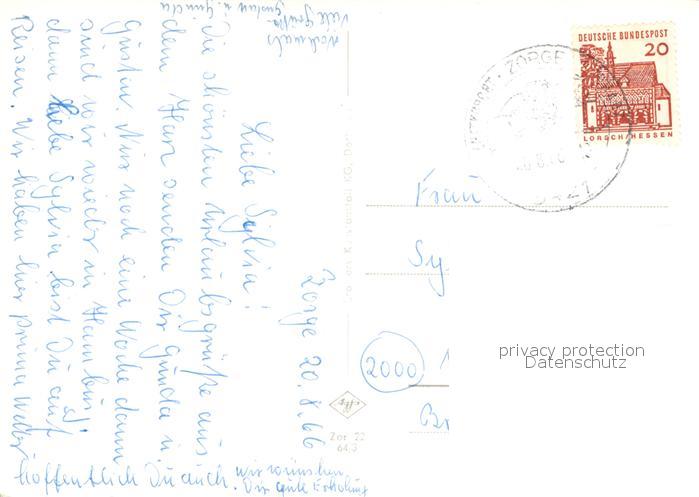 Zorge 20.8.66
Liebe Sylvia!
Die schönsten Urlaubsgrüße aus
dem Harz senden Dir Gunda u.
Gustav. Nur noch eine Woche dann
sind wir wieder in Hamburg,
dann liebe Sylvia bist Du auf
Reisen. Wir haben hier prima Wetter
hoffentlich Du auch. Wir wünschen
Dir gute Erholung
Nochmals
viele Grüße
Gustav u. Gunda
DEUTSCHE BUNDESPOST
20
LORSCH/HESSEN
ZORGE
Frau
Sy
2000
privacy protection
Datenschutz
Br
Zor 22
64,3